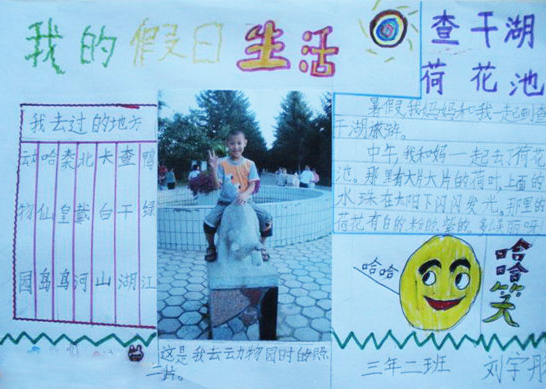 我的假日生活
查干湖
荷花池
我去过的地方
动物园
哈仙岛
秦皇岛
北戴河
长白山
查干湖
鸭绿江
暑假,我妈妈和我一起到查
干湖旅游。
中午,我和妈一起去荷花
池。那里有大片大片的荷叶,上面的
水珠在太阳下闪闪发光。那里的
荷花有白的粉的
哈哈
哈哈笑
这是我去动物园时的照
片。
三年二班 刘宇彤